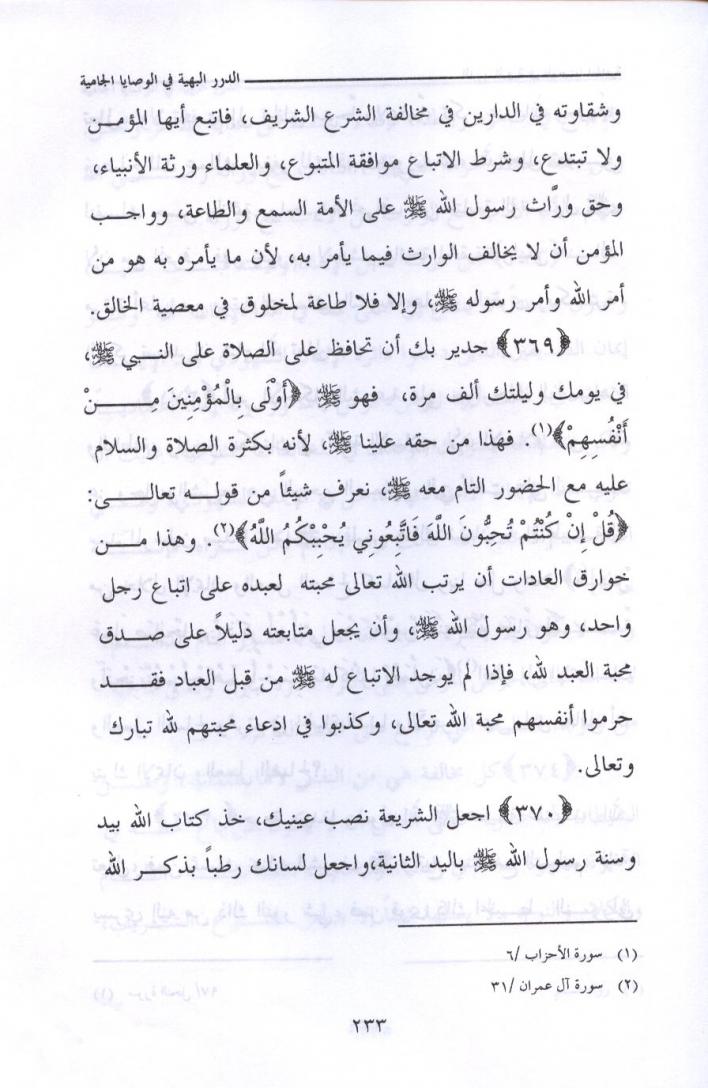 الدرر البهية في الوصايا الجامية
وشقاوته في الدارين في مخالفة الشرع الشريف، فاتبع أيها المؤمن
ولا تبتدع، وشرط الاتباع موافقة المتبوع، والعلماء ورثة الأنبياء،
وحق ورَّاث رسول الله ﷺ على الأمة السمع والطاعة، وواجب
المؤمن أن لا يخالف الوارث فيما يأمر به، لأن ما يأمره به هو من
أمر الله وأمر رسوله ﷺ، وإلا فلا طاعة لمخلوق في معصية الخالق.
﴿٣٦٩﴾ جدير بك أن تحافظ على الصلاة على النبي ﷺ،
في يومك وليلتك ألف مرة، فهو ﷺ ﴿أَوْلَى بِالْمُؤْمِنِينَ مِنْ
أَنْفُسِهِمْ﴾(١). فهذا من حقه علينا ﷺ، لأنه بكثرة الصلاة والسلام
عليه مع الحضور التام معه ﷺ، نعرف شيئاً من قوله تعالى:
﴿قُلْ إِنْ كُنْتُمْ تُحِبُّونَ اللَّهَ فَاتَّبِعُونِي يُحْبِبْكُمُ اللَّهُ﴾(٢). وهذا من
خوارق العادات أن يرتب الله تعالى محبته لعبده على اتباع رجل
واحد، وهو رسول الله ﷺ، وأن يجعل متابعته دليلاً على صدق
محبة العبد لله، فإذا لم يوجد الاتباع له ﷺ من قبل العباد فقد
حرموا أنفسهم محبة الله تعالى، وكذبوا في ادعاء محبتهم لله تبارك
وتعالى.
﴿٣٧٠﴾ اجعل الشريعة نصب عينيك، خذ كتاب الله بيد
وسنة رسول الله ﷺ باليد الثانية،واجعل لسانك رطباً بذكر الله
(١) سورة الأحزاب /٦
(٢) سورة آل عمران /٣١
٢٣٣